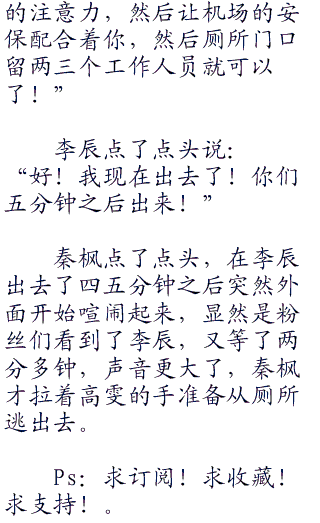 的注意力，然后让机场的安
保配合着你，然后厕所门口
留两三个工作人员就可以
了！”
李辰点了点头说：
“好！我现在出去了！你们
五分钟之后出来！”
秦枫点了点头，在李辰
出去了四五分钟之后突然外
面开始喧闹起来，显然是粉
丝们看到了李辰，又等了两
分多钟，声音更大了，秦枫
才拉着高雯的手准备从厕所
逃出去。
Ps：求订阅！求收藏！
求支持！。